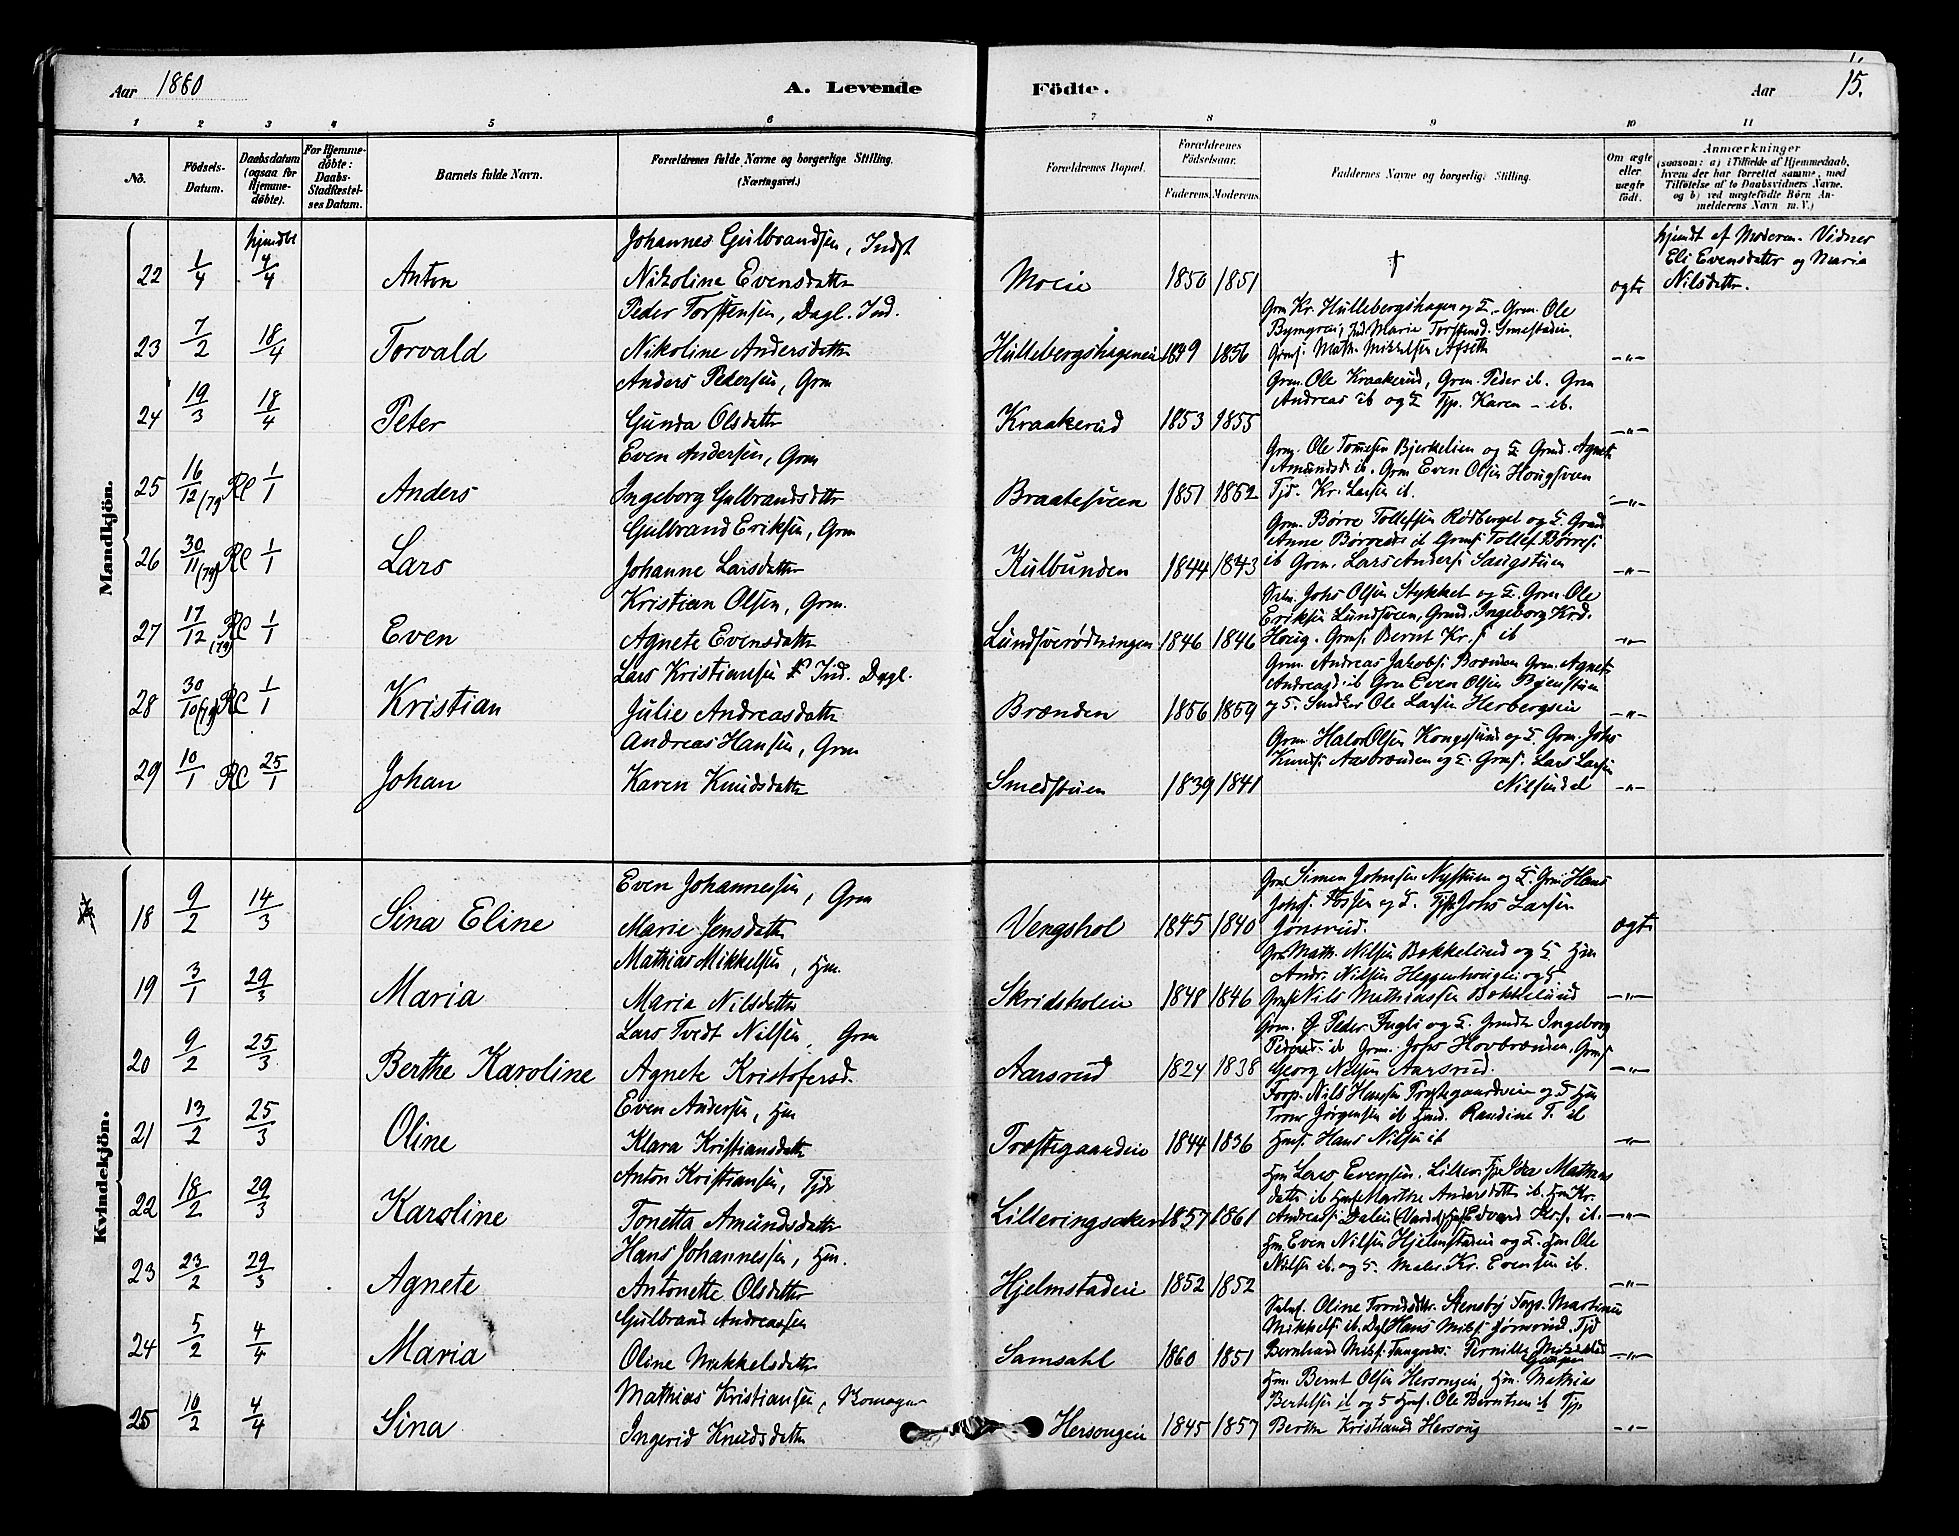 Aar 1880
A. Levende Födte.
Aar
15.
1 2 3 4 5 6 7 8 9 10 11
No.
Födsels-Datum.
Daabsdatum (ogsaa for Hjemme-döbte).
For Hjemme-döbte: Daabs-Stadfæstel-ses Datum.
Barnets fulde Navn.
Forældrenes fulde Navne og borgerlige Stilling. (Næringsvei.)
Forældrenes Bopæl.
Forældrenes Födselsaar.
Faderens. Moderens.
Faddernes Navne og borgerlig Stilling.
Om ægte eller uægte födt.
Anmærkninger
(saasom: a) i Tilfælde af Hjemmedaab, hvem der har forrettet samme, med Tilföielse af to Daabsvidners Navne. og b) ved uægtefödte Börn An-melderens Navn m. V.)
Mandkjön.
22 1/4 hjemdbt 4/4 Anton
Johannes Gulbrandsen, Indst
Nikoline Evensdatter
Moeie 1850 1851 † ægte
hjemdt af Moderen. Vidner
Eli Evensdatter og Maria
Nilsdatter.
23 7/2 18/4 Torvald
Peder Torstensen, Dagl. Ind.
Nikoline Andersdatter
Hullebergshageneie 1849 1856
Grm Kr. Hullebergshagen og H. Grm. Ole
Marie Torstensd. Smestadeie
Math. Mikkelsen
24 19/3 18/4 Peter
Anders Pedersen, Grm
Gunda Olsdatter
Kraakerud 1853 1855
Grm. Ole Kraakerud, Grm. Peder ib. Grm
Andreas ib og H Tjp. Karen - ib.
25 16/12 (79) RC 1/1 Anders
Even Andersen, Grm
Ingeborg Gulbrandsdatter
Braatesveen 1851 1852
Grm. Ole Tomesen Bjerkelien og H Agnete
Amundsd ib. Grm Even Olsen Hougsveen
Tjd. Kr. Larsen ib.
26 30/11 (79) RC 1/1 Lars
Gulbrand Eriksen, Grm
Johanne Larsdatter
Kulbunden 1844 1843
Grm. Børre Tollefsen Rødberget og H.
Anne Tollef Børres.
ib Grm. Lars Anders. Saugstuen
27 17/12 (79) RC 1/1 Even
Kristian Olsen, Grm.
Agnete Evensdatter
Lundsverødningen 1846 1846
Johs Olsen Stykket og H. Grm Ole
Eriksen Lundsveen, Ingeborg Krd.
Houg. Bernt Kr.s. ib
28 30/10 (79) RC 1/1 Kristian
Lars Kristiansen Ind. Dagl.
Julie Andreasdatter
Brænden 1856 1859
Grm. Andreas Jakobs. Brænden Grm. Agnete
Andreasd. ib Even Olsen
Ole Larsen Herbergseie
29 10/1 RC 25/1 Johan
Andreas Hansen, Grm
Karen Knudsdatter
Smedstuen 1839 1841
Grm. Halvor Olsen Kongssund og H. Grm. Johs
Knuds. Aasbrænden og H. Lars Larsen
Nilsundet
Kvindekjön.
18 9/2 14/3 Sina Eline
Even Johannessen, Grm
Marie Jensdatter
Vengshol 1845 1840 ægte
Grm Simen Johnsen Nystuen og H. Grm Hans
Johs. Fossen og H. Johs Larsen
Jønsrud.
19 3/1 29/3 Maria
Mathias Mikkelsen, Hm.
Maria Nilsdatter
Skridsholeie 1848 1846
Math. Nilsen Bekkelund og H Hm
Andr. Nilsen Heggenhougeie og H
Nils Mathiassen Bekkelund
20 9/2 25/3 Berthe Karoline
Lars Tvedt Nilsen, Grm
Agnete Kristofersd.
Aarsrud 1824 1838
Grm. Peder Fugli og H. Ingeborg
Pedersd. ib Grm. Johs Hovbrænden,
Georg Nilsen Aarsrud.
21 13/2 25/3 Oline
Even Andersen, Hm
Klara Kristiansdatter
Præstegaardeie 1844 1836
Forp. Nils Hansen Præstegaardseie og H Hm
Jørgensen ib Randine
Hans Nilsen ib
22 18/2 29/3 Karoline
Anton Kristiansen, Tjdr
Tonetta Amundsdatter
Lilleringsaker 1857 1861
Hm Lars Evensen. Ida Mathias
datter ib Marthe Andersdatter ib. Hm Kr.
Andreass. Daleie Edvard Kr.s. ib.
23 23/2 29/3 Agnete
Hans Johannessen, Hm.
Antonette Olsdatter
Hjelmstadeie 1852 1852
Hm. Even Nilsen Hjelmstadeie og H. Hm Ole
Nilsen ib. og H. Maler Kr. Evensen ib.
24 5/2 4/4 Maria
Gulbrand Andreassen
Oline Mikkelsdatter
Samsahl 1860 1851
Oline Stensby Forp. Martinus
Mikkels. ib. Hans Mikls. Jønsrud. Tjd
Bernhard Mikls. Tangnes. Pernille Mikkelsd
25 10/2 4/4 Sina
Mathias Kristiansen, Komager
Ingerid Knudsdatter
Hersougeie 1845 1857
Hm. Bernt Olsen Hersougeie Hm. Mathias
Bertelsen ib og H. Ole Berntsen ib Tjp
Berthe Kristiansd Hersoug